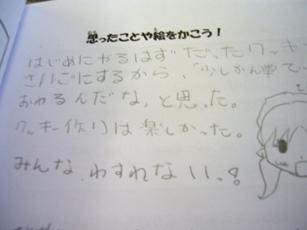 思ったことや絵をかこう！
はじめにやるはずだったクッキ
さいごにするから、少しかん単で
おわるんだな、と思った。
クッキー作りは楽しかった。
みんな、わすれない、!